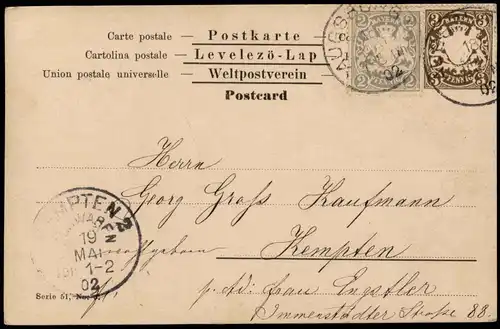 Carte postale — Postkarte —
Cartolina postale — Levelezö-Lap —
Union postale universelle — Weltpostverein —
Postcard
AUGSBURG
02
BAYERN
2 2
BAYERN
3 3
PFENNIG
Herrn
Georg Groß Kaufmann
Kempten
p. Ad: Frau Engstler
Immenstädter Straße 88.
KEMPTEN 2
19
MAI
1-2
02
Serie 51, No.